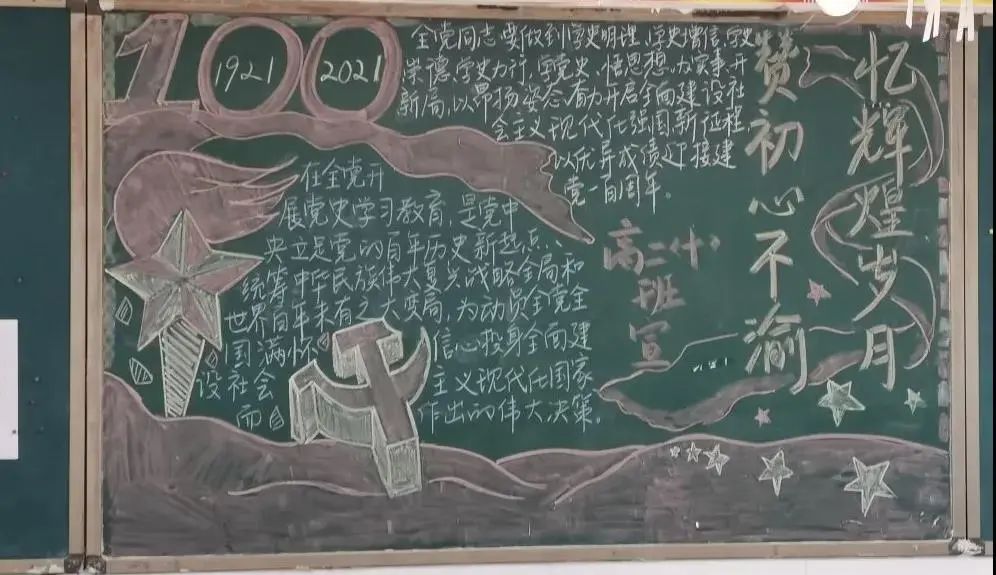 100
1921
2021
全党同志要做到学史明理、学史增信、学史
崇德、学史力行，学党史、悟思想、办实事、开
新局，以昂扬姿态奋力开启全面建设社
会主义现代化强国新征程，
以优异成绩迎接建
党一百周年。
忆辉煌岁月
赞初心不渝
在全党开
展党史学习教育，是党中
央立足党的百年历史新起点、
统筹中华民族伟大复兴战略全局和
世界百年未有之大变局，为动员全党全
国满怀信心投身全面建
设社会主义现代化国家
而作出的伟大决策。
高二(十)
班
宣